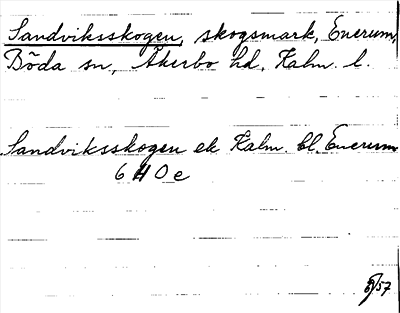 Sandviksskogen, skogsmark, Enerum,
Böda sn, Åkerbo hd, Kalm. l.
Sandviksskogen ek Kalm. bl. Enerum
6 H 0 e